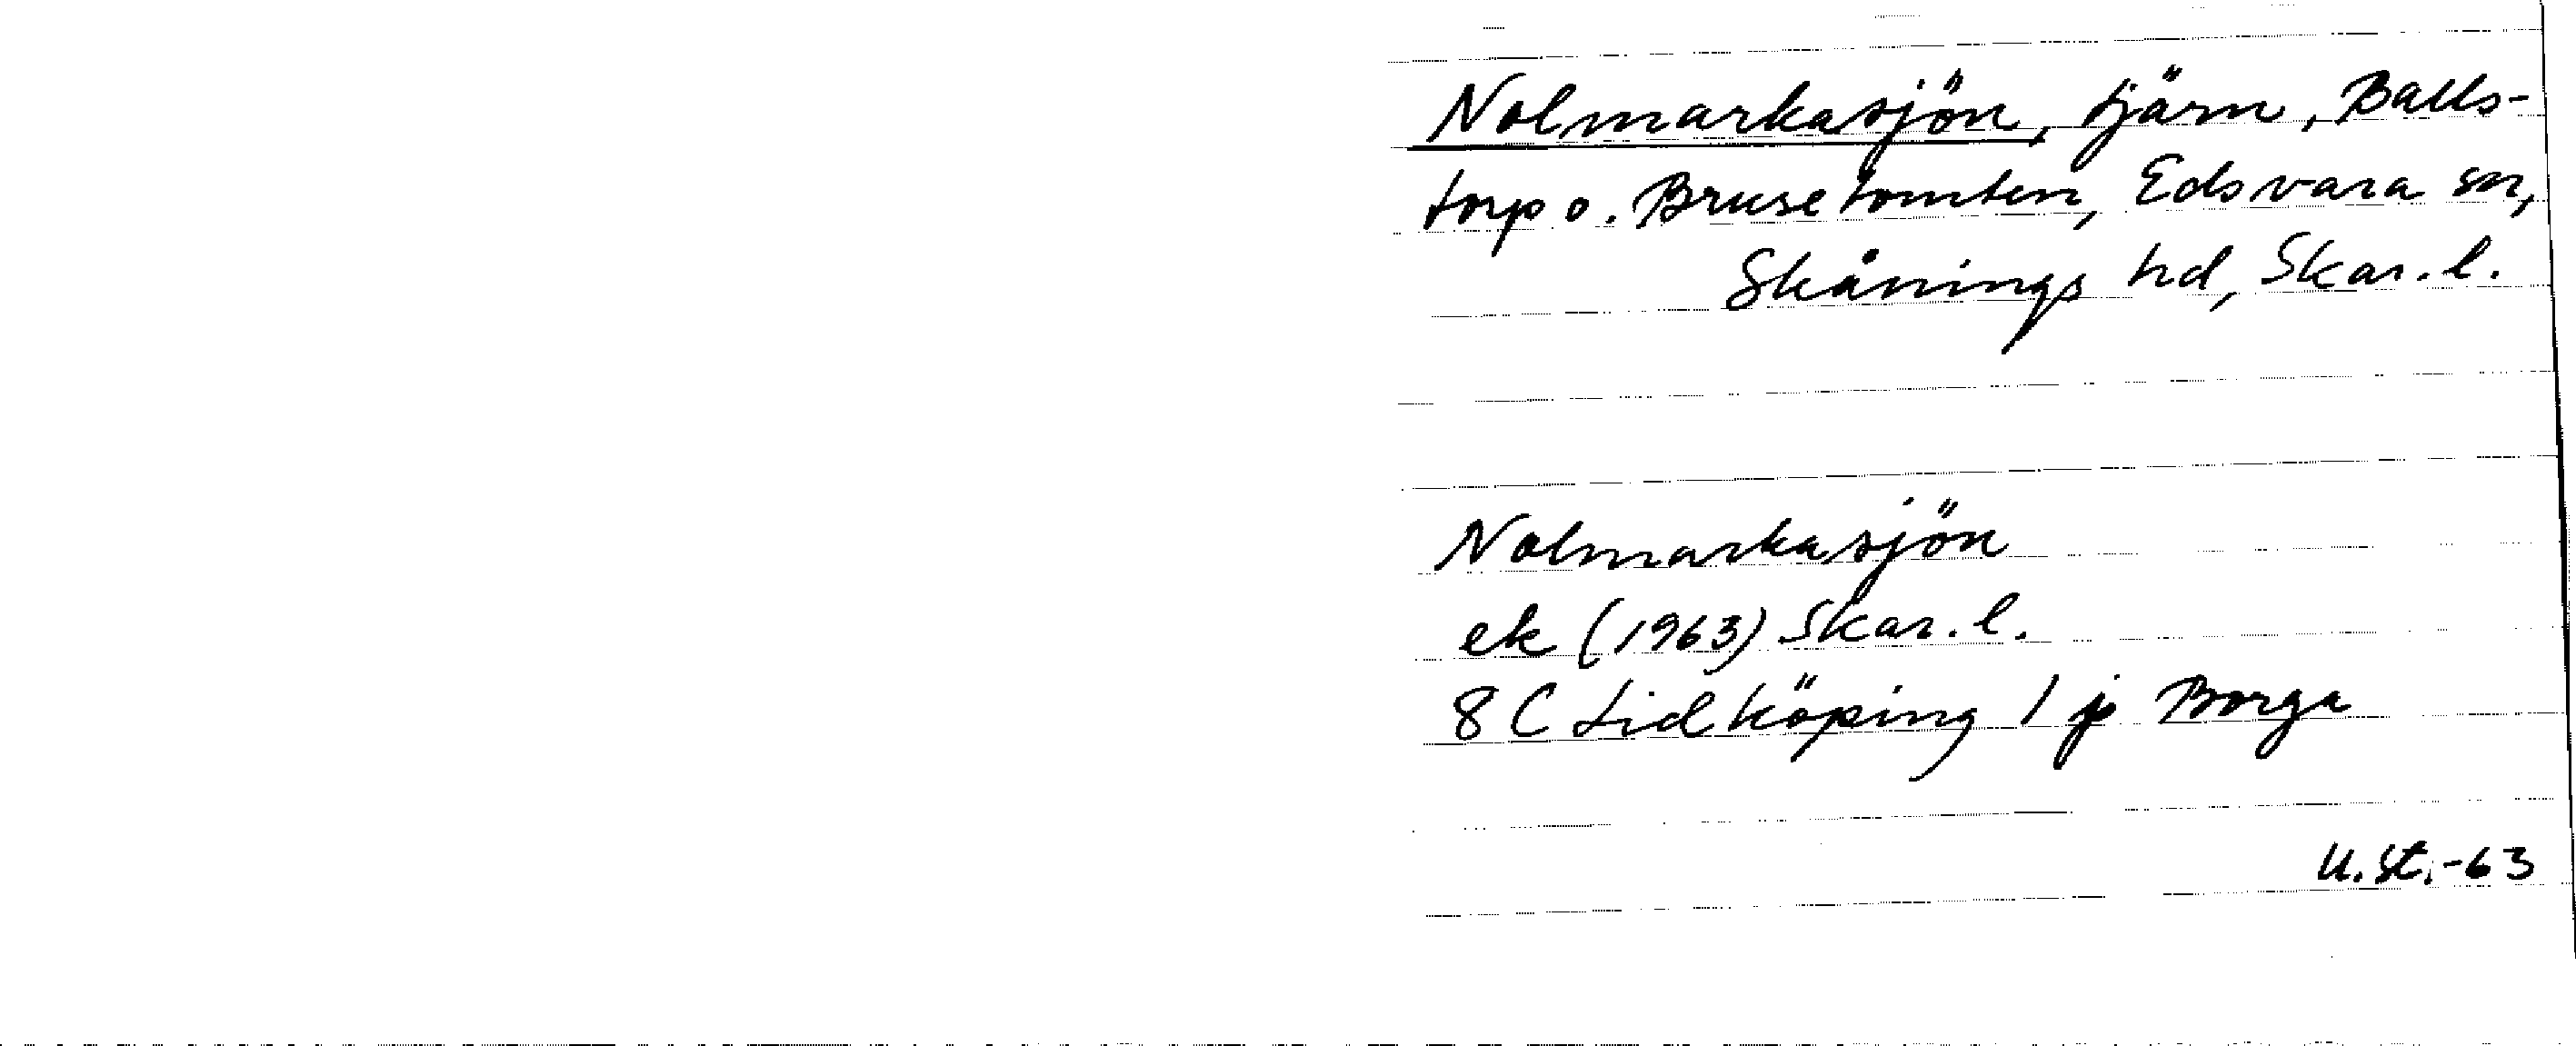 Nolmarkasjön, tjärn, Balls-
torp o. Brusetomten, Edsvara sn,
Skånings hd, Skar. l.
Nolmarkasjön
ek (1963) Skar. l.
8 C Lidköping 1 j Borga
U. St. -63